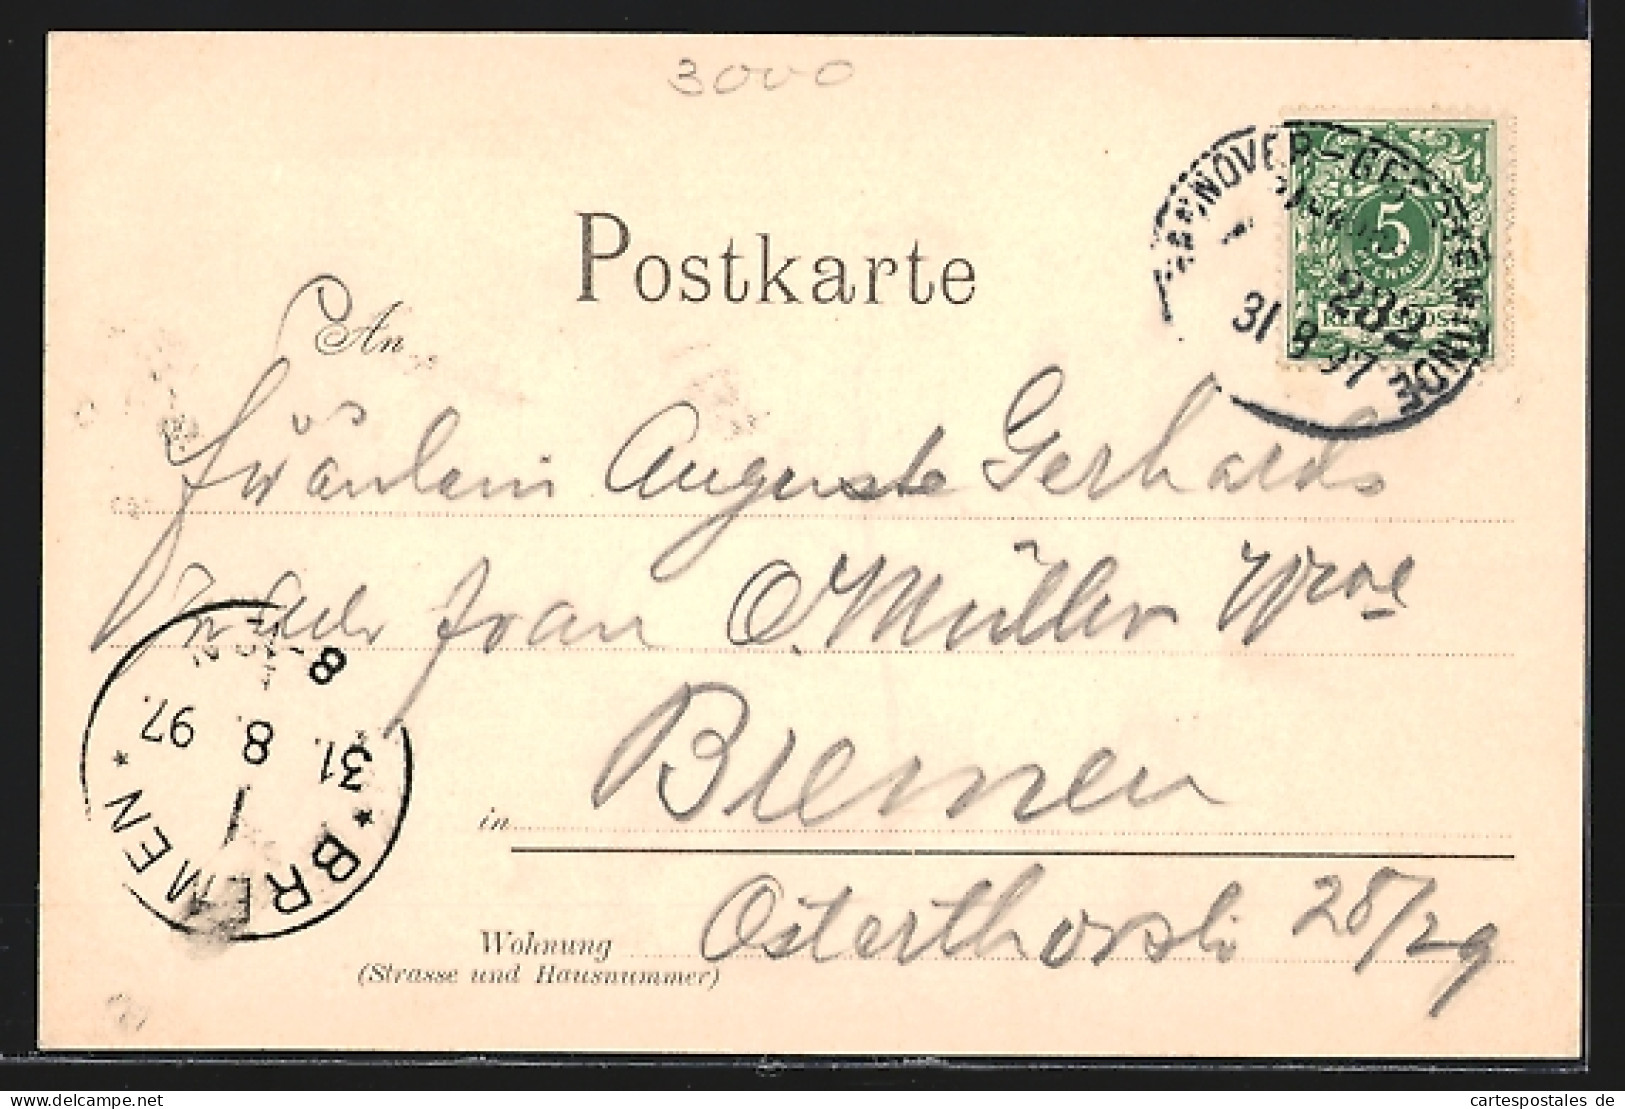 3000
Postkarte
An
5
PFENNIG
REICHSPOST
HANNOVER-GEESTEMÜNDE
282
31 8 97
Fräulein Auguste Gerhards
Frau O. Müller Wwe
8
31. 8. 97.
* BREMEN *
1
in Bremen
Wohnung Osterthorstr. 28/29
(Strasse und Hausnummer)
cartespostales de